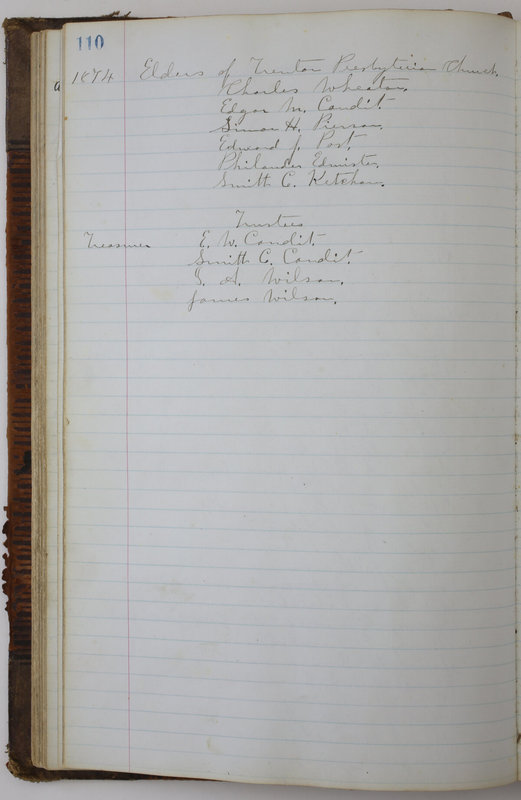 110
1874 Elders of Trenton Presbyterian Church.
Charles Wheaton.
Edgar M. Condit.
Simon H. Pierson.
Edward J. Post.
Philander Edmister.
Smith C. Ketcham.
Trustees
Treasurer E. W. Condit.
Smith C. Condit.
S. A. Wilson.
James Wilson.